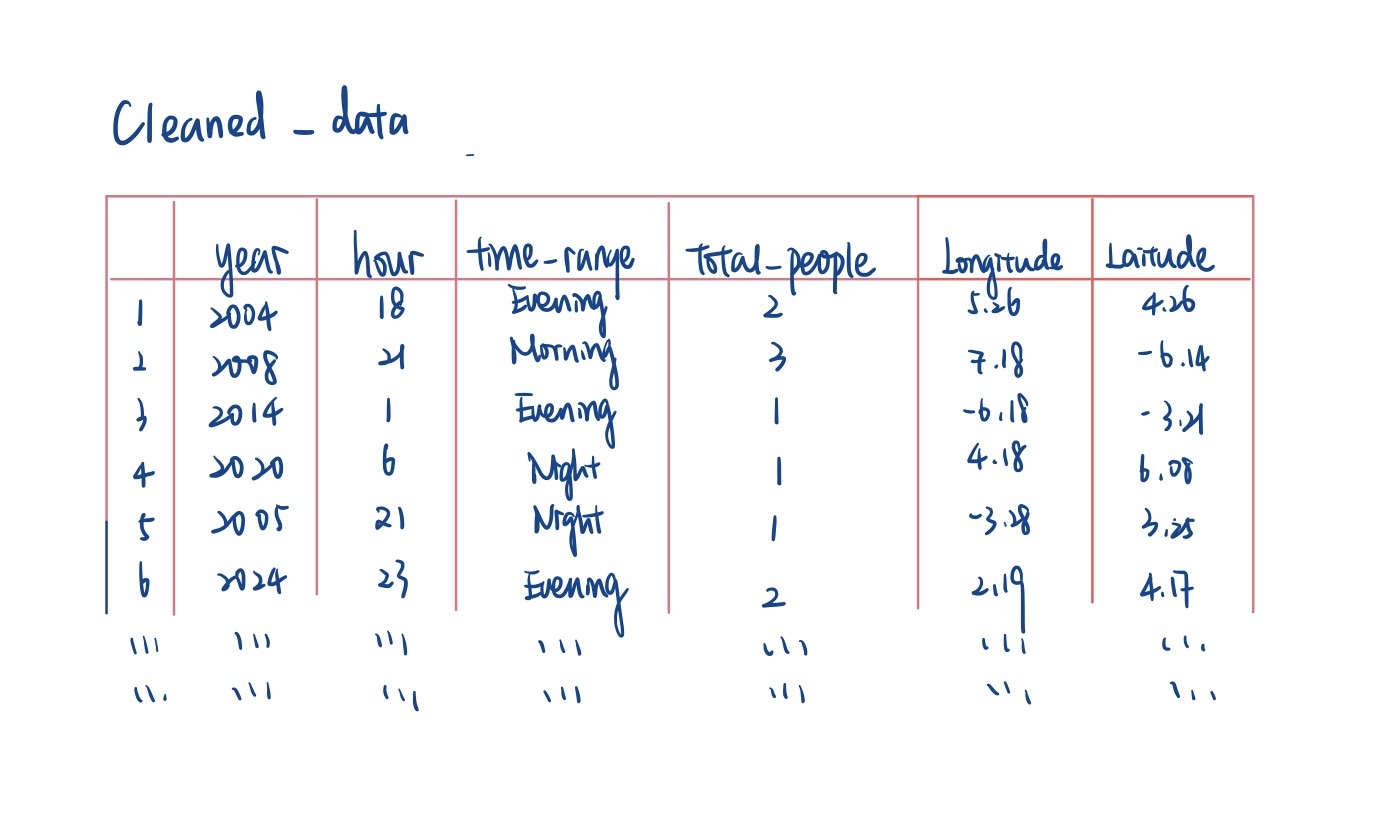 Cleaned_data
year hour time_range Total_people Longitude Laitude
1 2004 18 Evening 2 5.26 4.26
2 2008 21 Morning 3 7.18 -6.14
3 2014 1 Evening 1 -6.18 -3.21
4 2020 6 Night 1 4.18 6.08
5 2005 21 Night 1 -3.28 3.25
6 2024 23 Evening 2 2.19 4.17
... ... ... ... ... ... ...
... ... ... ... ... ... ...